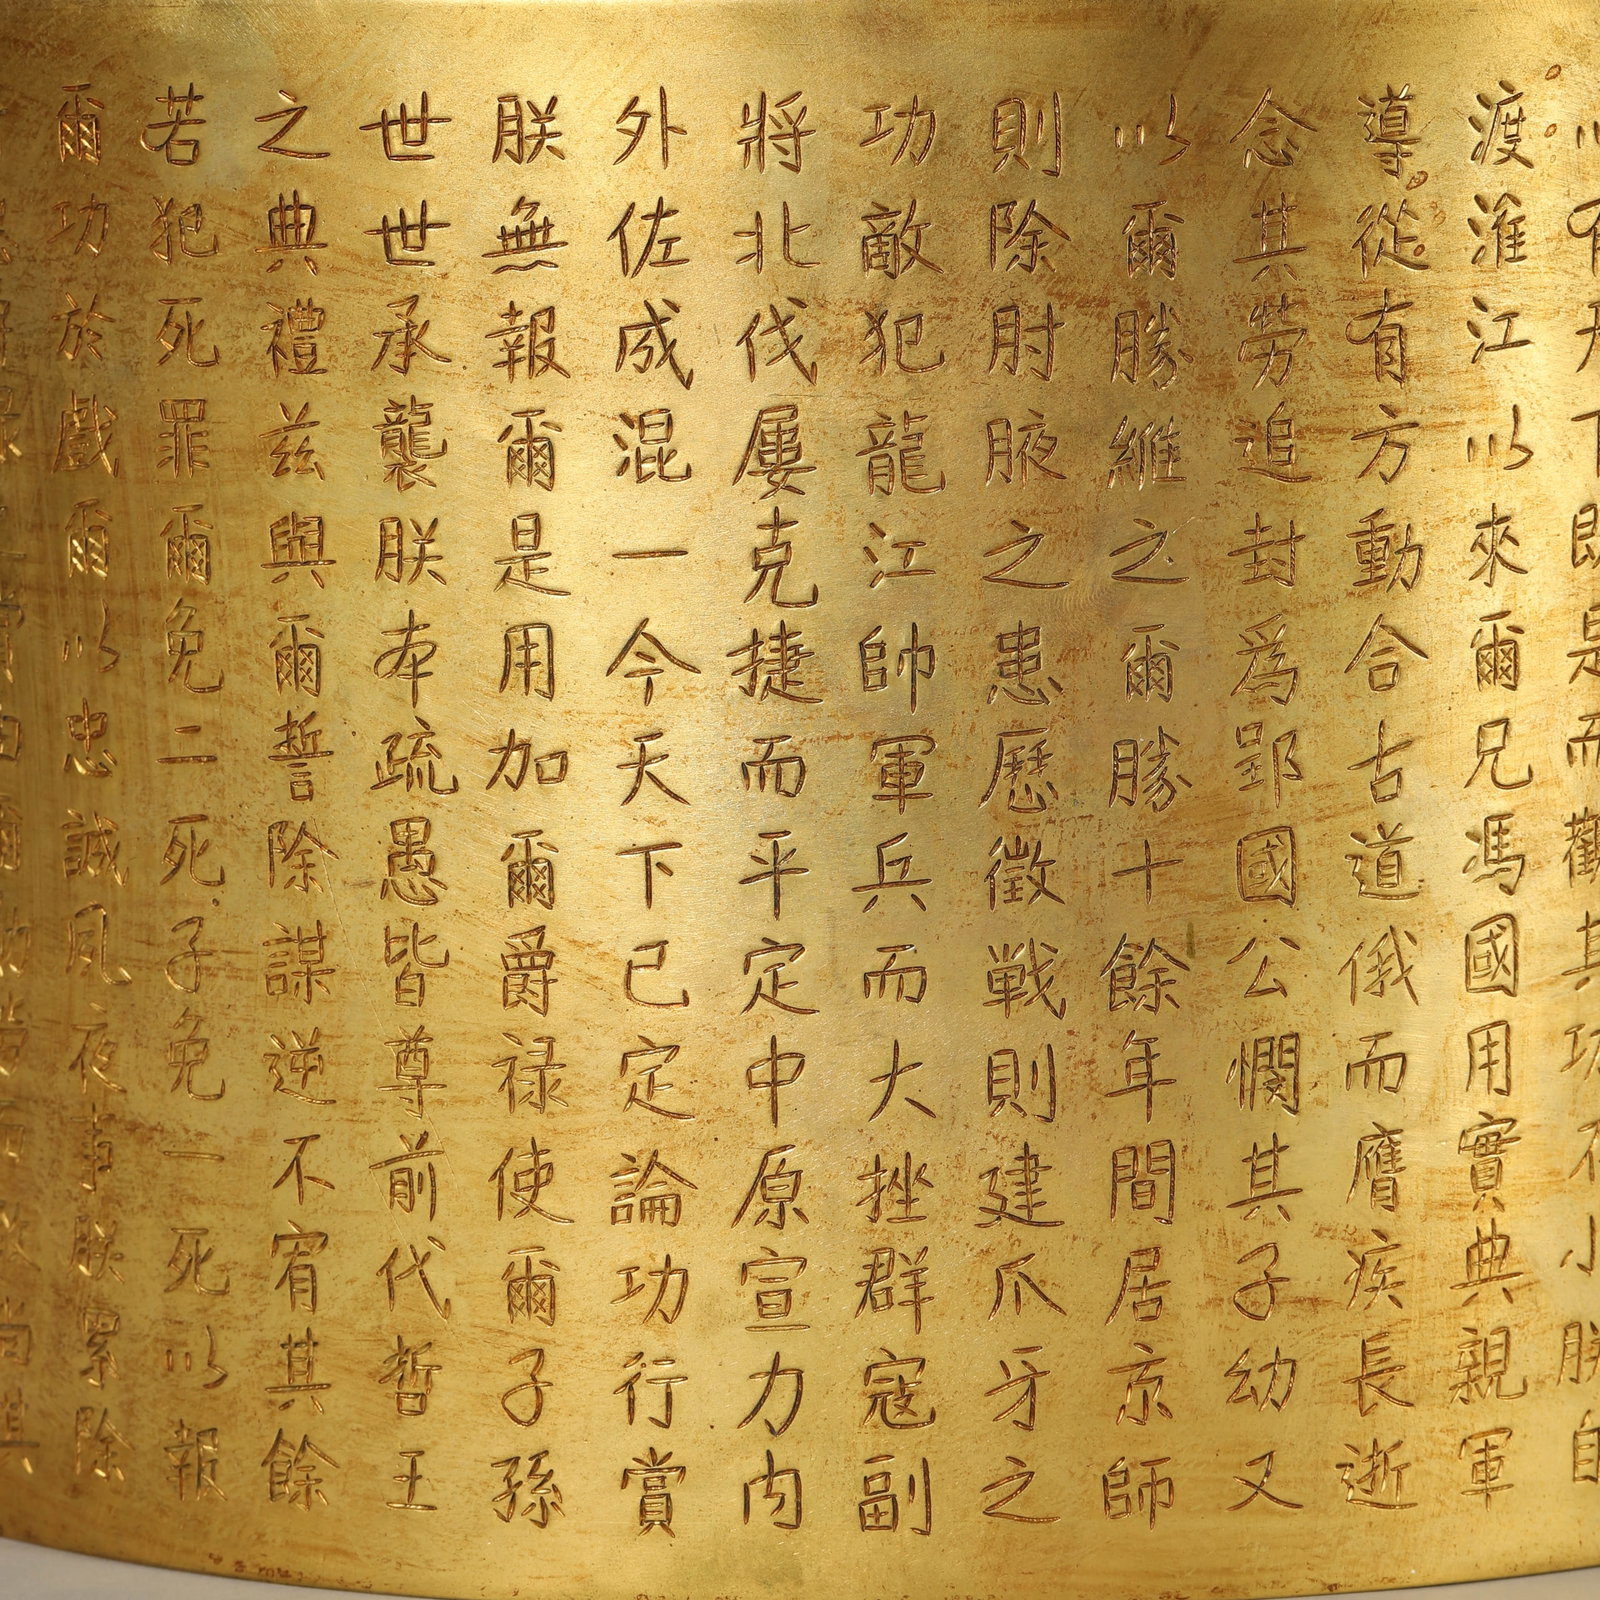 有 下即是而觀其功不小朕自
渡淮江以來爾兄馮國用實典親軍
導從有方動合古道俄而膺疾長逝
念其勞追封爲郢國公憫其子幼又
以爾勝維之爾勝十餘年間居京師
則除肘腋之患歷徵戰則建爪牙之
功敵犯龍江帥軍兵而大挫群寇副
將北伐屢克捷而平定中原宣力内
外佐成混一今天下已定論功行賞
朕無報爾是用加爾爵禄使爾子孫
世世承襲朕本疏愚皆尊前代哲王
之典禮兹與爾誓除謀逆不宥其餘
若犯死罪爾免二死子免一死以報
爾功於戲爾以忠誠夙夜事朕累除